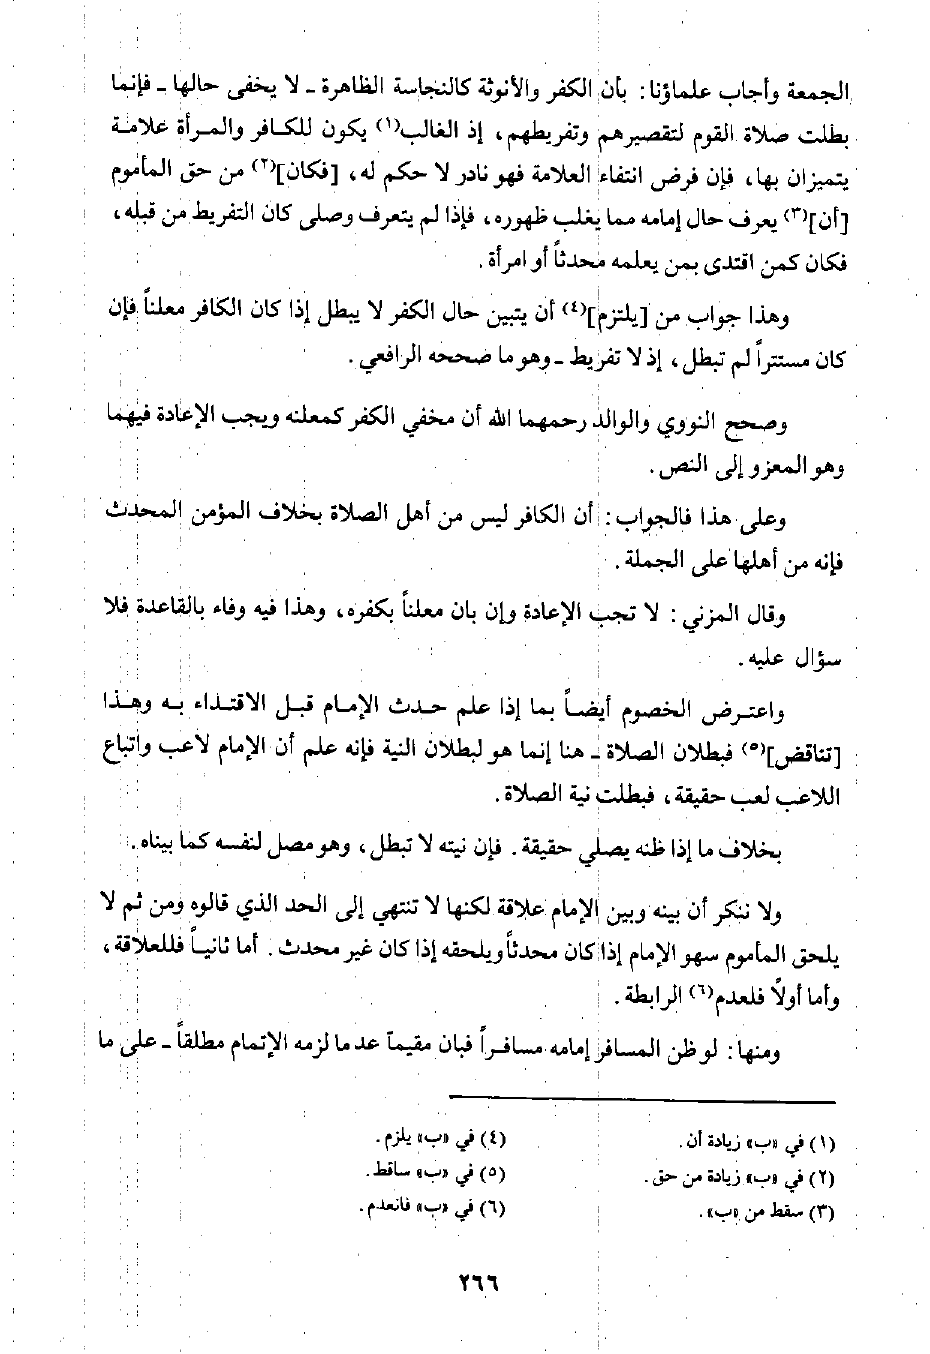 الجمعة وأجاب علماؤنا: بأن الكفر والأنوثة كالنجاسة الظاهرة ـ لا يخفى حالها ـ فإنما
بطلت صلاة القوم لتقصيرهم وتفريطهم، إذ الغالب(١) يكون للكافر والمرأة علامة
يتميزان بها، فإن فرض انتفاء العلامة فهو نادر لا حكم له، [فكان](٢) من حق المأموم
[أن](٣) يعرف حال إمامه مما يغلب ظهوره، فإذا لم يتعرف وصلى كان التفريط من قبله،
فكان كمن اقتدى بمن يعلمه محدثاً أو امرأة.
وهذا جواب من [يلتزم](٤) أن يتبين حال الكفر لا يبطل إذا كان الكافر معلناً فإن
كان مستتراً لم تبطل، إذ لا تفريط ـ وهو ما صححه الرافعي.
وصحح النووي والوالد رحمهما الله أن مخفي الكفر كمعلنه ويجب الإعادة فيهما
وهو المعزو إلى النص.
وعلى هذا فالجواب: أن الكافر ليس من أهل الصلاة بخلاف المؤمن المحدث
فإنه من أهلها على الجملة.
وقال المزني: لا تجب الإعادة وإن بان معلناً بكفره، وهذا فيه وفاء بالقاعدة فلا
سؤال عليه.
واعترض الخصوم أيضاً بما إذا علم حدث الإمام قبل الاقتداء به وهذا
[تناقض](٥) فبطلان الصلاة ـ هنا إنما هو لبطلان النية فإنه علم أن الإمام لاعب واتباع
اللاعب لعب حقيقة، فبطلت نية الصلاة.
بخلاف ما إذا ظنه يصلي حقيقة. فإن نيته لا تبطل، وهو مصل لنفسه كما بيناه.
ولا ننكر أن بينه وبين الإمام علاقة لكنها لا تنتهي إلى الحد الذي قالوه ومن ثم لا
يلحق المأموم سهو الإمام إذا كان محدثاً ويلحقه إذا كان غير محدث. أما ثانياً فللعلاقة،
وأما أولاً فلعدم(٦) الرابطة.
ومنها: لو ظن المسافر إمامه مسافراً فبان مقيماً عدما لزمه الإتمام مطلقاً ـ على ما
(١) في «ب» زيادة أن.
(٢) في «ب» زيادة من حق.
(٣) سقط من «ب».
(٤) في «ب» يلزم.
(٥) في «ب» ساقط.
(٦) في «ب» فانعدم.
٢٦٦